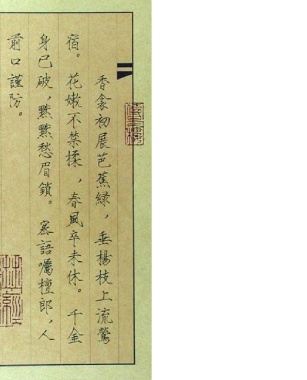 香衾初展芭蕉緑，垂楊枝上流鶯
宿。花嫩不禁揉，春風卒未休。千金
身已破，默默愁眉鎖。密語囑檀郎，人
前口謹防。